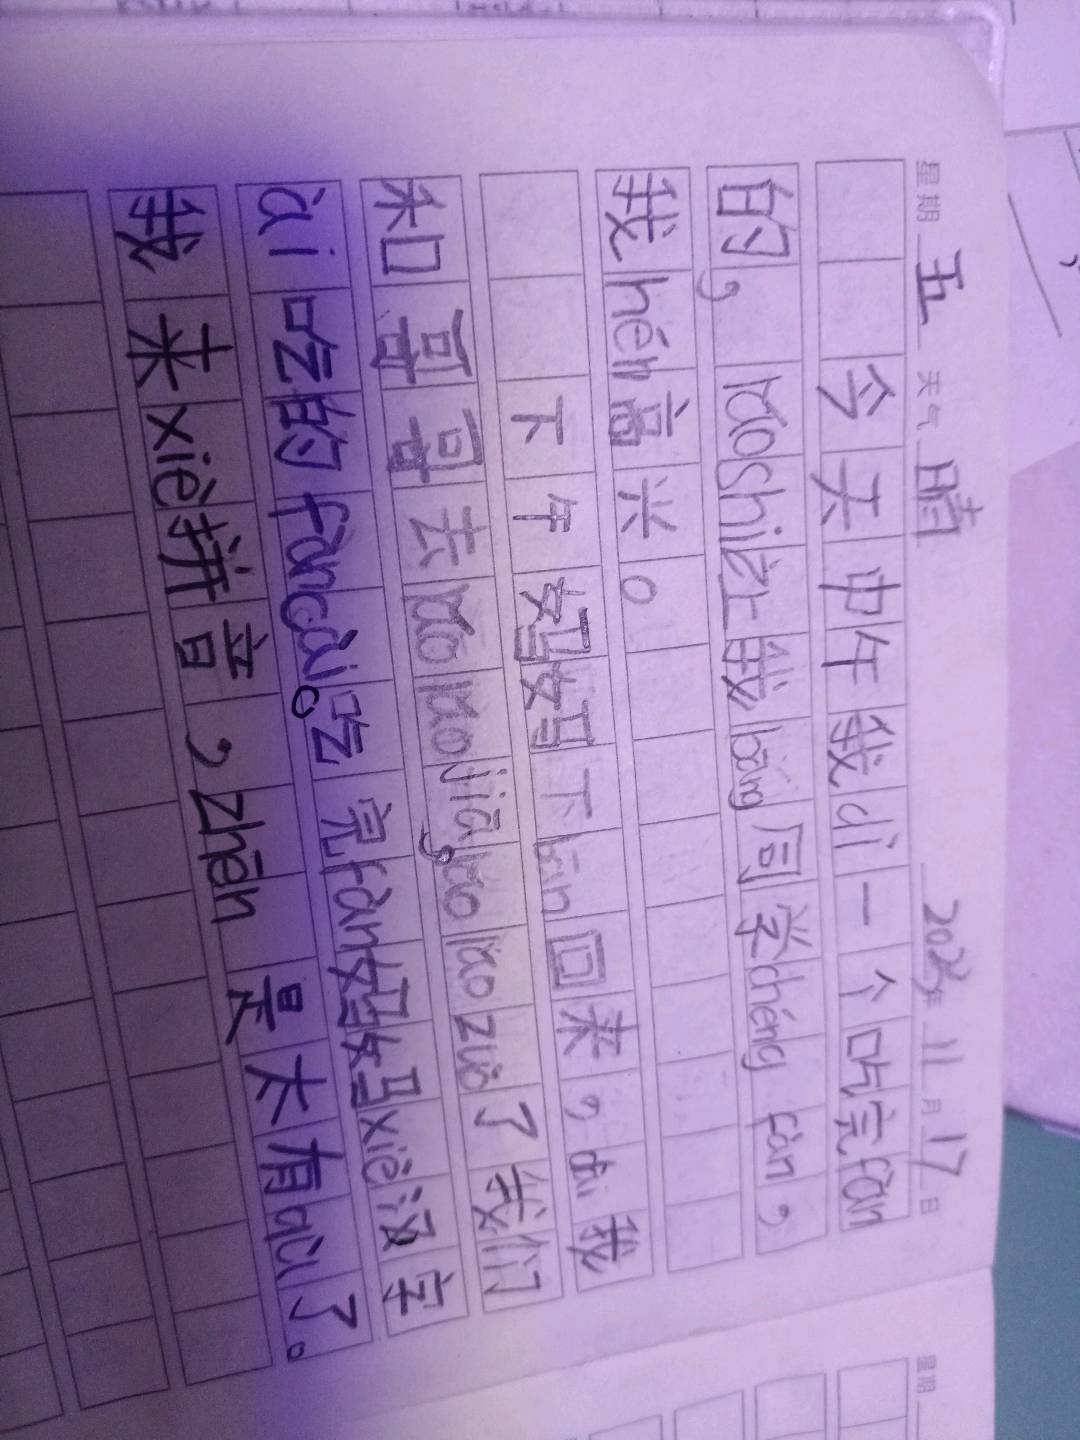 星期五 天气晴 2023年11月17日
今天中午我dì一个吃完fàn
的，lǎoshī让我bāng同学chéng fàn，
我hěn高兴。
下午妈妈下bān回来，dài我
和哥哥去lǎo lao jiā，lǎo lao zuò了我们
ài吃的fàncài。吃完fàn妈妈xiě汉字
我来xiě拼音，zhēn是太有qù了。
星期